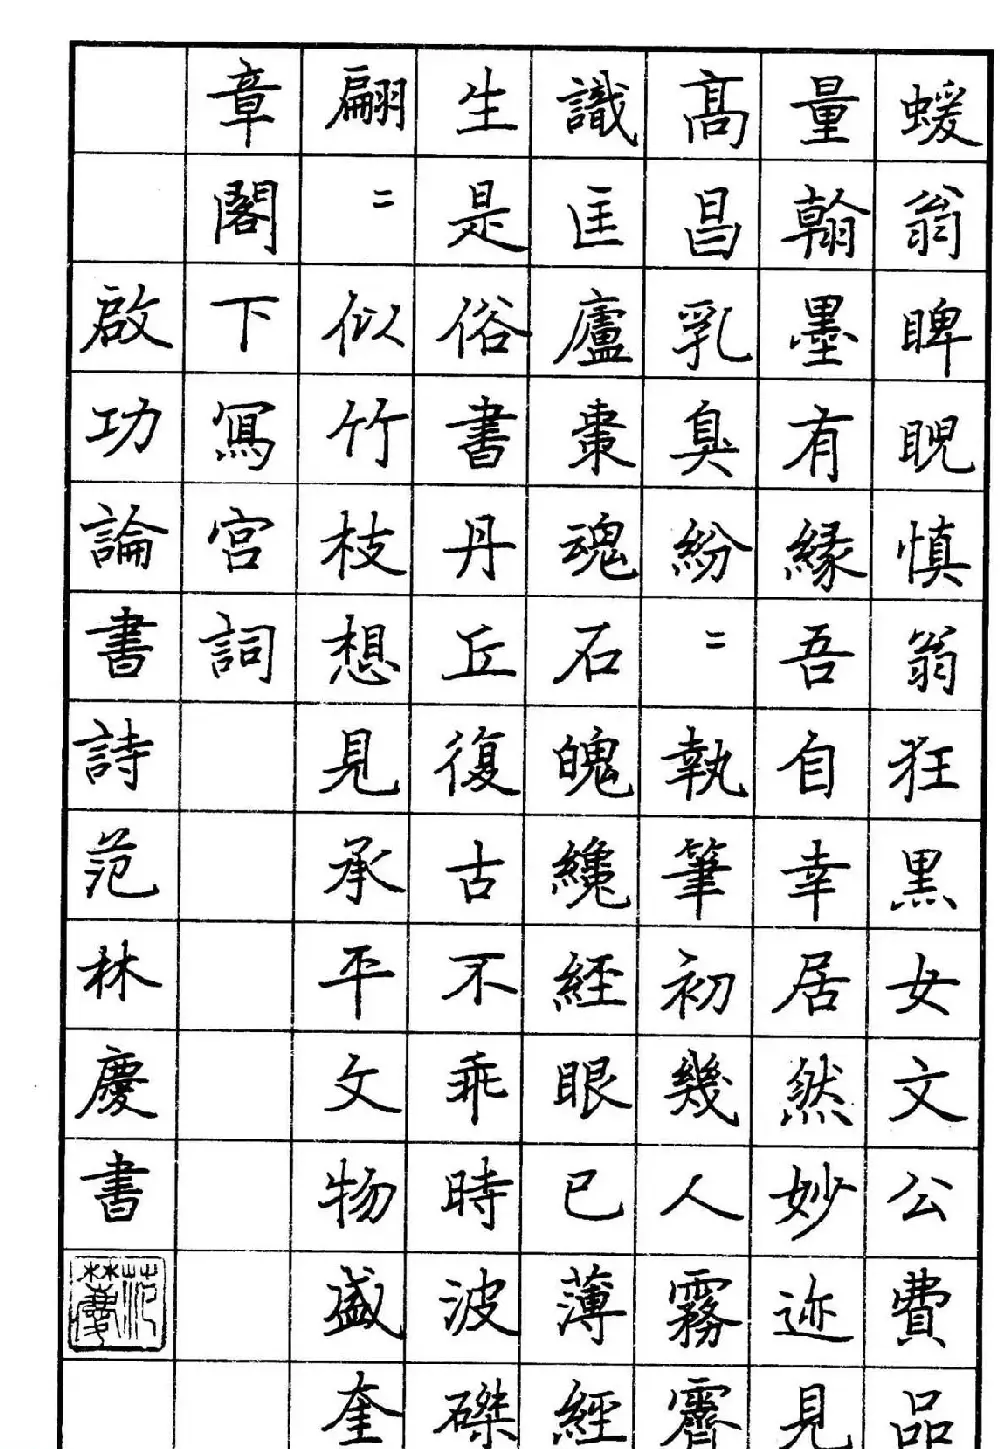 蝯翁睥睨慎翁狂黑女文公費品
量翰墨有緣吾自幸居然妙迹見
高昌乳臭紛〻執筆初幾人霧霽
識匡廬棗魂石魄纔經眼已薄經
生是俗書丹丘復古不乖時波磔
翩〻似竹枝想見承平文物盛奎
章閣下寫宮詞
啟功論書詩范林慶書
范林慶